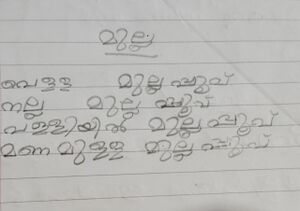 മുല്ല
വെള്ള മുല്ല പ്പൂവ്
നല്ല മുല്ല പ്പൂവ്
വള്ളിയിൽ മുല്ല പ്പൂവ്
മണ മുള്ള മുല്ല പ്പൂവ്